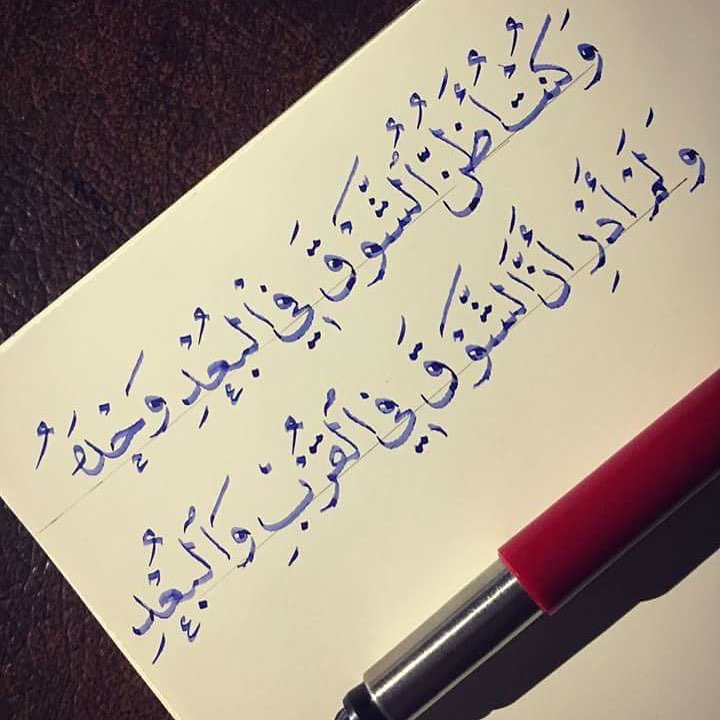 وَكُنْتُ أَظُنُّ ٱلشَّوْقَ فِي ٱلْبُعْدِ وَحْدَهُ
وَلَمْ أَدْرِ أَنَّ ٱلشَّوْقَ فِي ٱلْقُرْبِ وَٱلْبُعْدِ